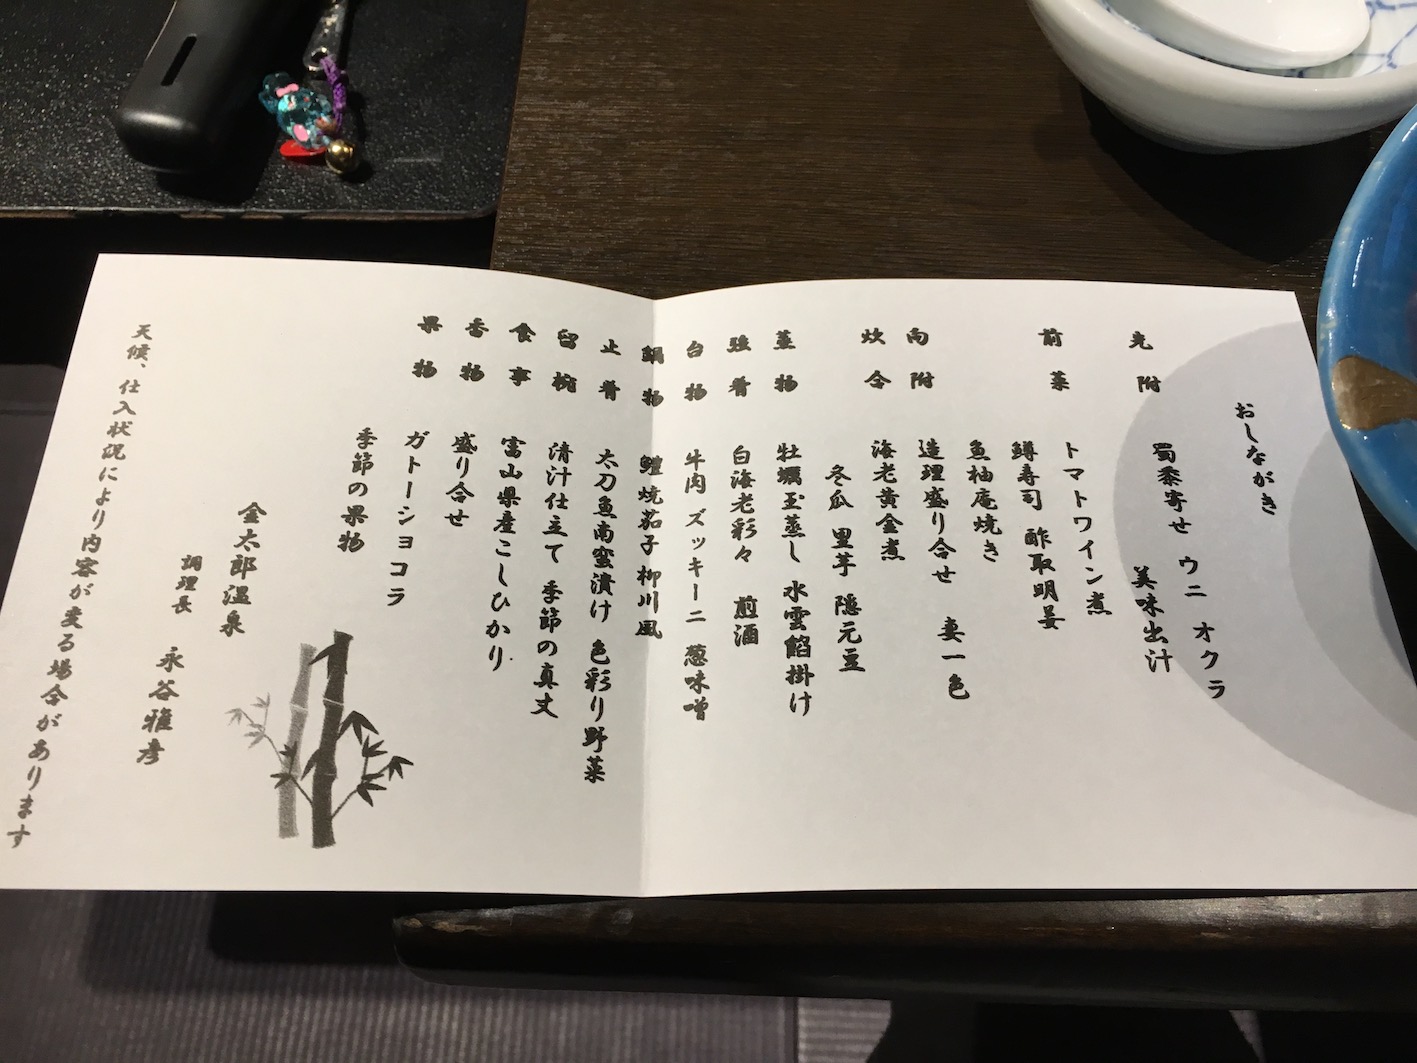 おしながき
先附 蜀黍寄せ ウニ オクラ
美味出汁
前菜 トマトワイン煮
鱒寿司 酢取明姜
魚柚庵焼き
向附 造理盛り合せ 妻一色
炊合 海老黄金煮
冬瓜 里芋 隠元豆
蒸物 牡蠣玉蒸し 水雲餡掛け
強肴 白海老彩々 煎酒
台物 牛肉 ズッキーニ 葱味噌
鍋物 鱧 焼茄子 柳川風
止肴 太刀魚南蛮漬け 色彩り野菜
留椀 清汁仕立て 季節の真丈
食事 富山県産こしひかり
香物 盛り合せ
果物 ガトーショコラ
季節の果物
金太郎温泉
調理長 永谷雅彦
天候、仕入状況により内容が変る場合があります